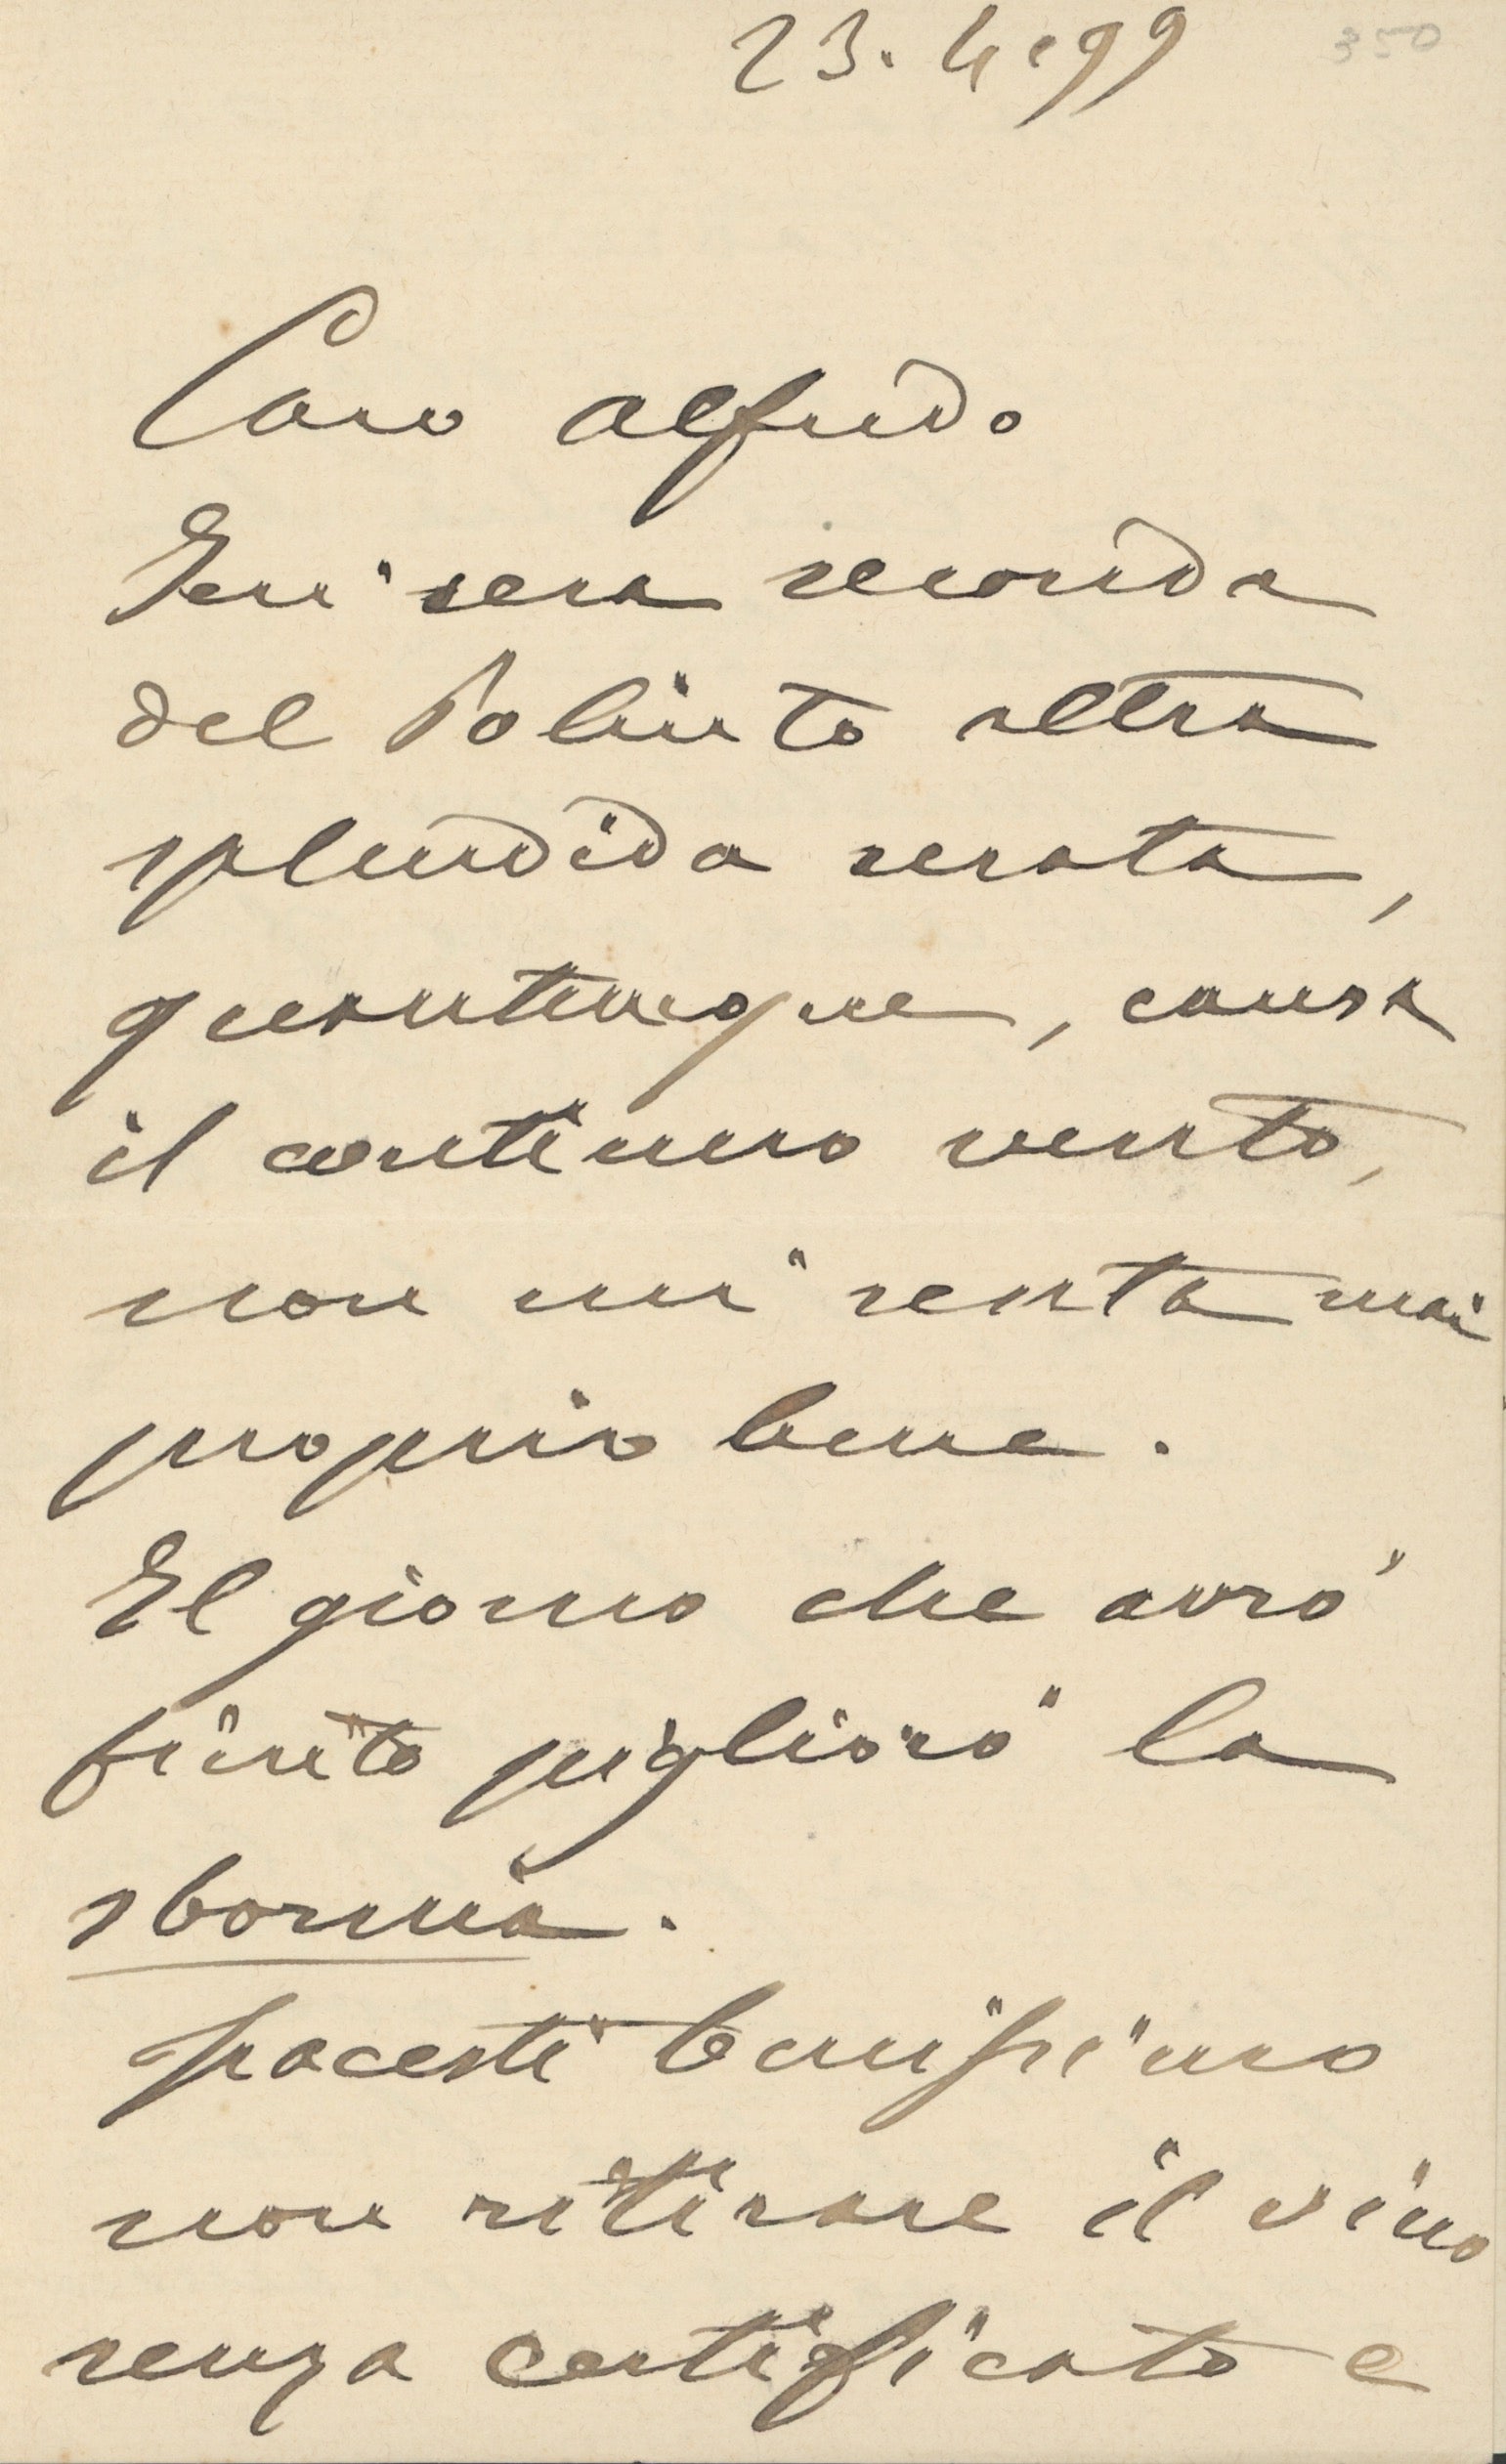 23. 4. 99 350
Caro Alfredo
Ieri sera seconda
del Poliuto altra
splendida serata,
quantunque, causa
il continuo vento,
non mi senta mai
proprio bene.
Il giorno che avrò
finito piglierò la
sbornia.
Facesti benissimo
non ritirare il vino
senza certificato e